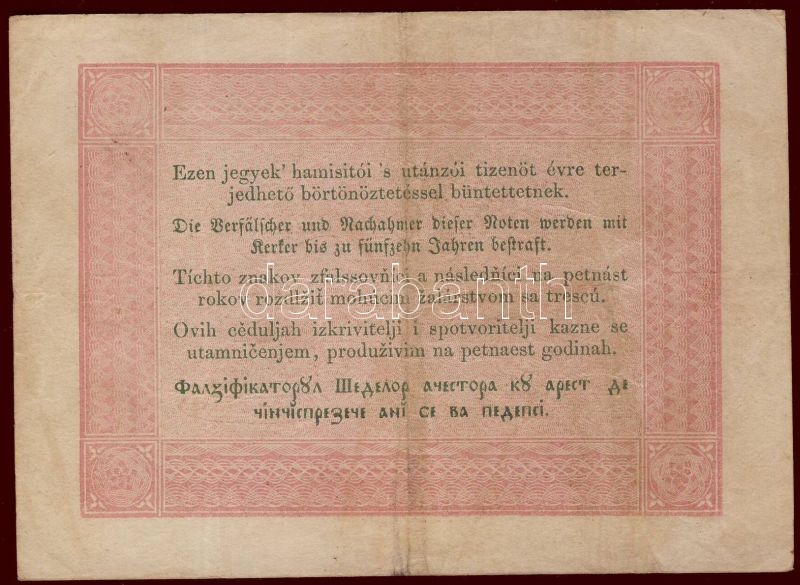 Ezen jegyek' hamisitói 's utánzói tizenöt évre ter-
jedhető börtönöztetéssel büntettetnek.
Die Verfälscher und Nachahmer dieser Noten werden mit
Kerker bis zu fünfzehn Jahren bestraft.
Tíchto znakov zfalssovňíci a následňíci na petnást
rokov rozdlžiť mohúcim žalárstvom sa trescú.
darabanth
Ovih cěduljah izkrivitelji i spotvoritelji kazne se
utamničenjem, produživim na petnaest godinah.
Фалꙋіфікаторꙋл Шеделор ачестора кꙋ арест де
чінчіспрезече ані се ва педепсі.